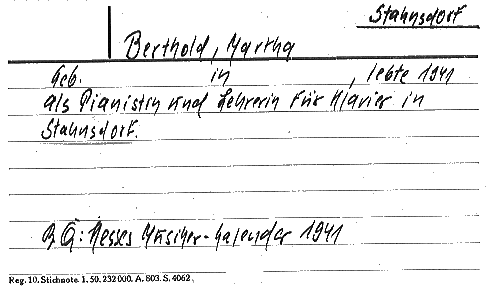 Stahnsdorf
Berthold, Martha
Geb. in , lebte 1941
als Pianistin und Lehrerin für Klavier in
Stahnsdorf.
B Q: Hesses Musiker-Kalender 1941
Reg. 10. Stichnote. 1. 50. 232000. A. 803. S. 4062.